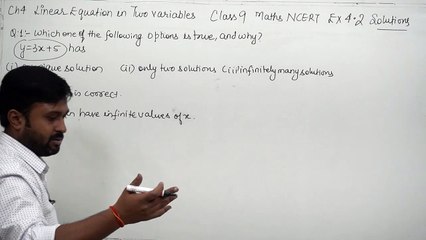 Ch4 Linear Equation in Two variables Class 9 Maths NCERT Ex 4.2 Solutions
Q.1:- Which one of the following options is true, and why?
y=3x+5 has
solution (ii) only two solutions (iii) infinitely many solutions
is correct.
have infinite values of x.